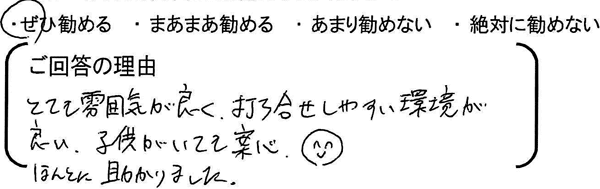 ・ぜひ勧める ・まあまあ勧める ・あまり勧めない ・絶対に勧めない
ご回答の理由
とても雰囲気が良く、打ち合せしやすい環境が
良い、子供がいても楽心、
ほんとに助かりました。